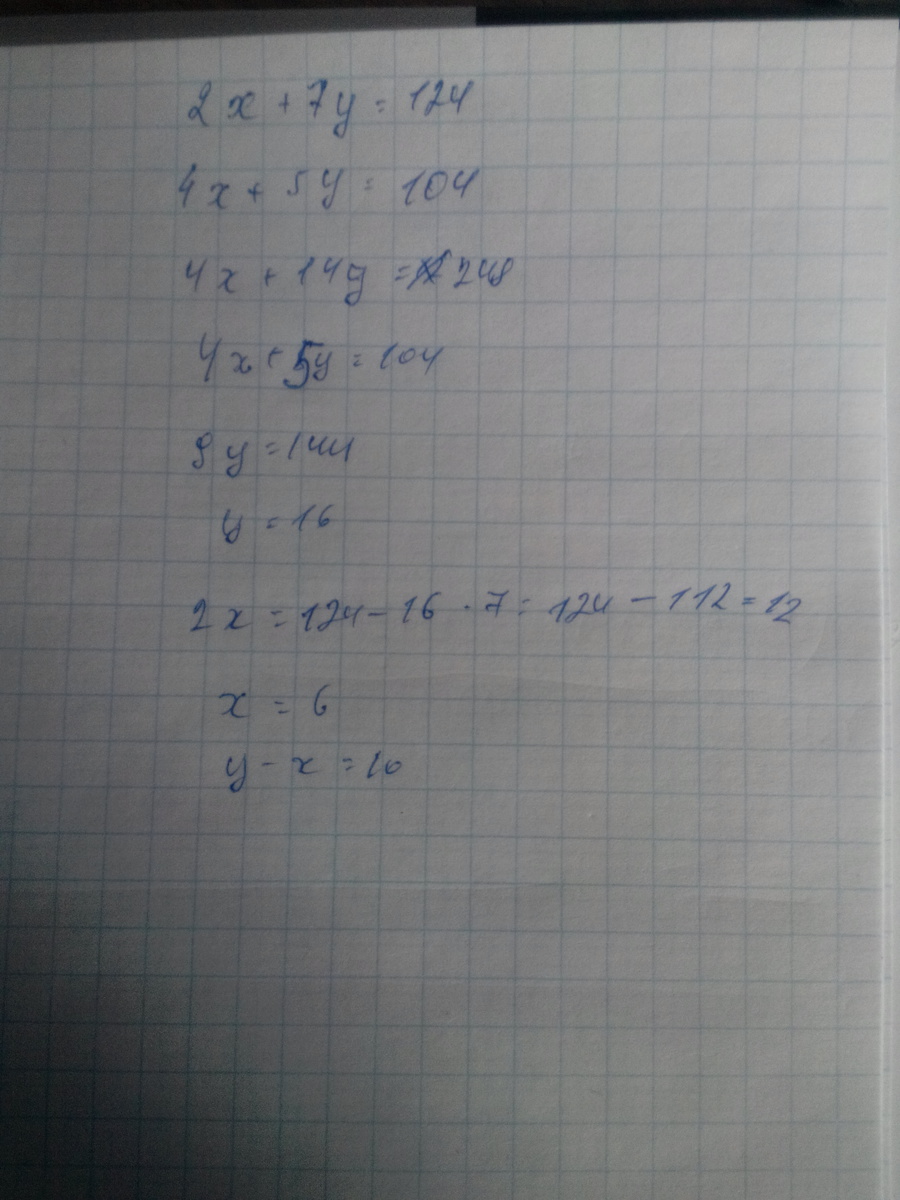 2x + 7y = 124
4x + 5y = 104
4x + 14y = 248
4x + 5y = 104
9y = 144
y = 16
2x = 124 - 16 · 7 = 124 - 112 = 12
x = 6
y - x = 10